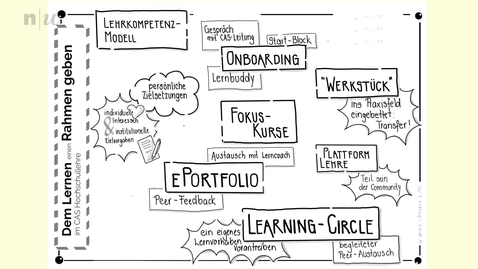 n
Dem Lernen einen Rahmen geben
im CAS Hochschullehre
LEHRKOMPETENZ-
MODELL
Gespräch
mit CAS-Leitung
Start-Block
ONBOARDING
Lernbuddy
persönliche
Zielsetzungen
individuelle
Interessen
& institutionelle
Zielvorgaben
"WERKSTÜCK"
ins Praxisfeld
eingebettet:
Transfer!
FOKUS-
KURSE
Austausch mit Lerncoach
PLATTFORM
LEHRE
Teil sein
der Community
EPORTFOLIO
Peer-Feedback
LEARNING-CIRCLE
ein eigenes
Lernvorhaben
vorantreiben
begleiteter
Peer-Austausch